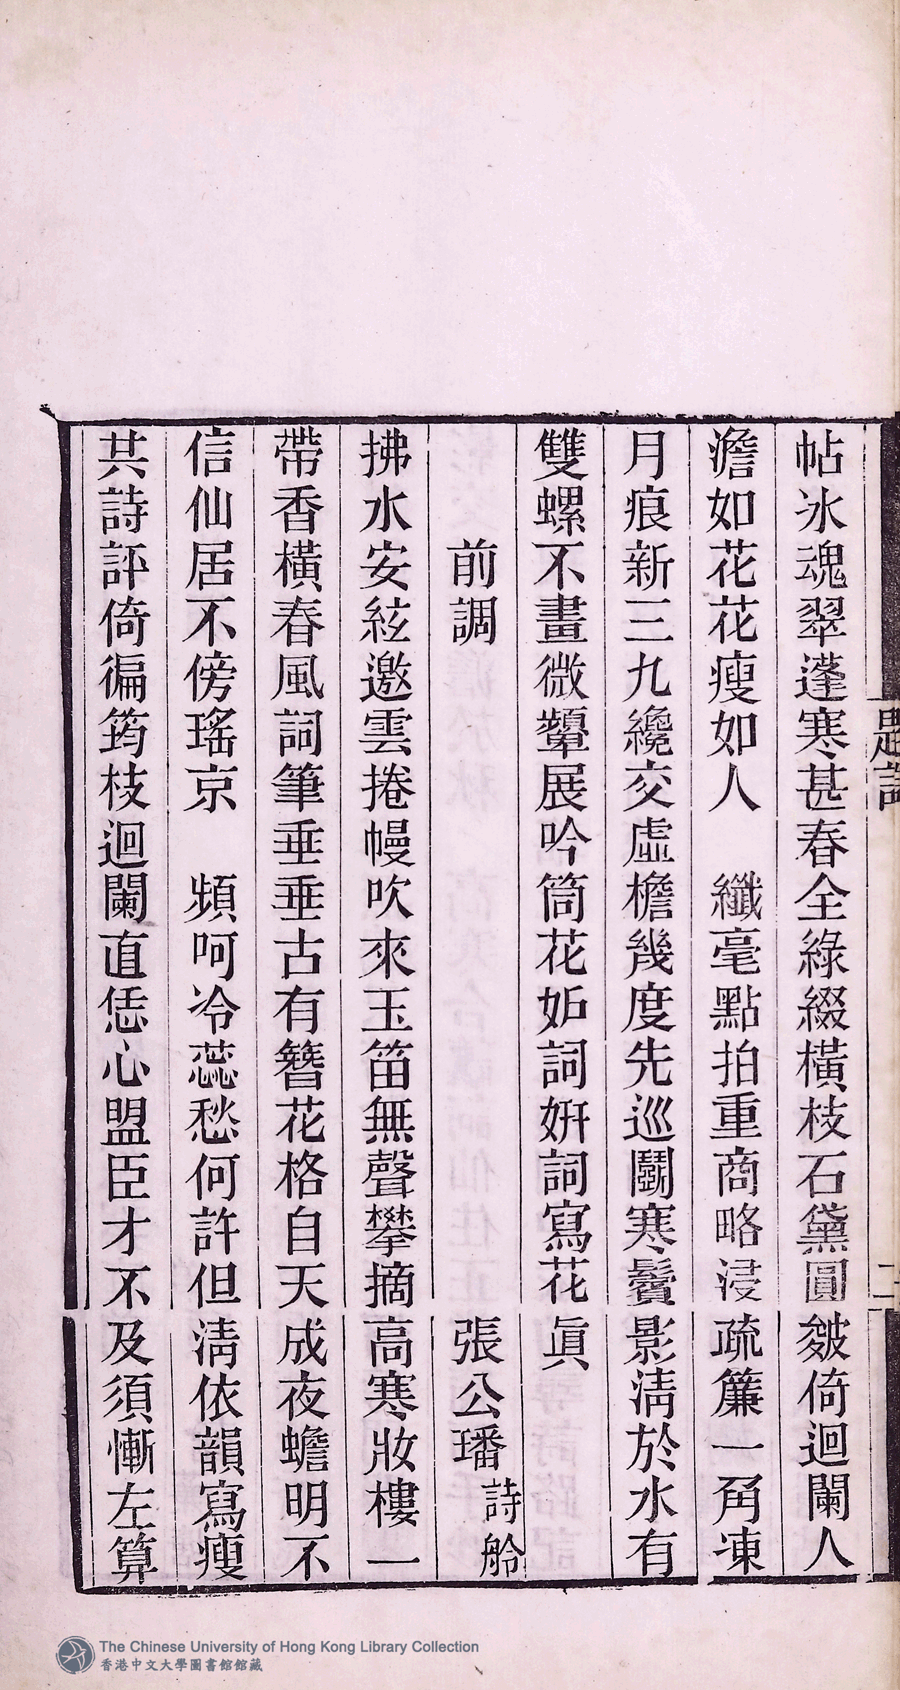 帖氷魂翠蓬寒甚春全綠綴橫枝石黛圓皴倚迴闌人
澹如花花瘦如人　纖毫點拍重商略浸疏簾一角凍
月痕新三九纔交虛檐幾度先巡鬭寒鬢影淸於水有
雙螺不畫微顰展吟筒花妒詞妍詞寫花眞
前調　張公璠詩舲
拂水安絃邀雲捲幔吹來玉笛無聲攀摘高寒妝樓一
帶香橫春風詞筆垂垂古有簪花格自天成夜蟾明不
信仙居不傍瑤京　頻呵冷蕊愁何許但淸依韻寫瘦
共詩評倚徧筠枝迴闌直恁心盟臣才不及須慚左算
題詞
二
The Chinese University of Hong Kong Library Collection
香港中文大學圖書館館藏